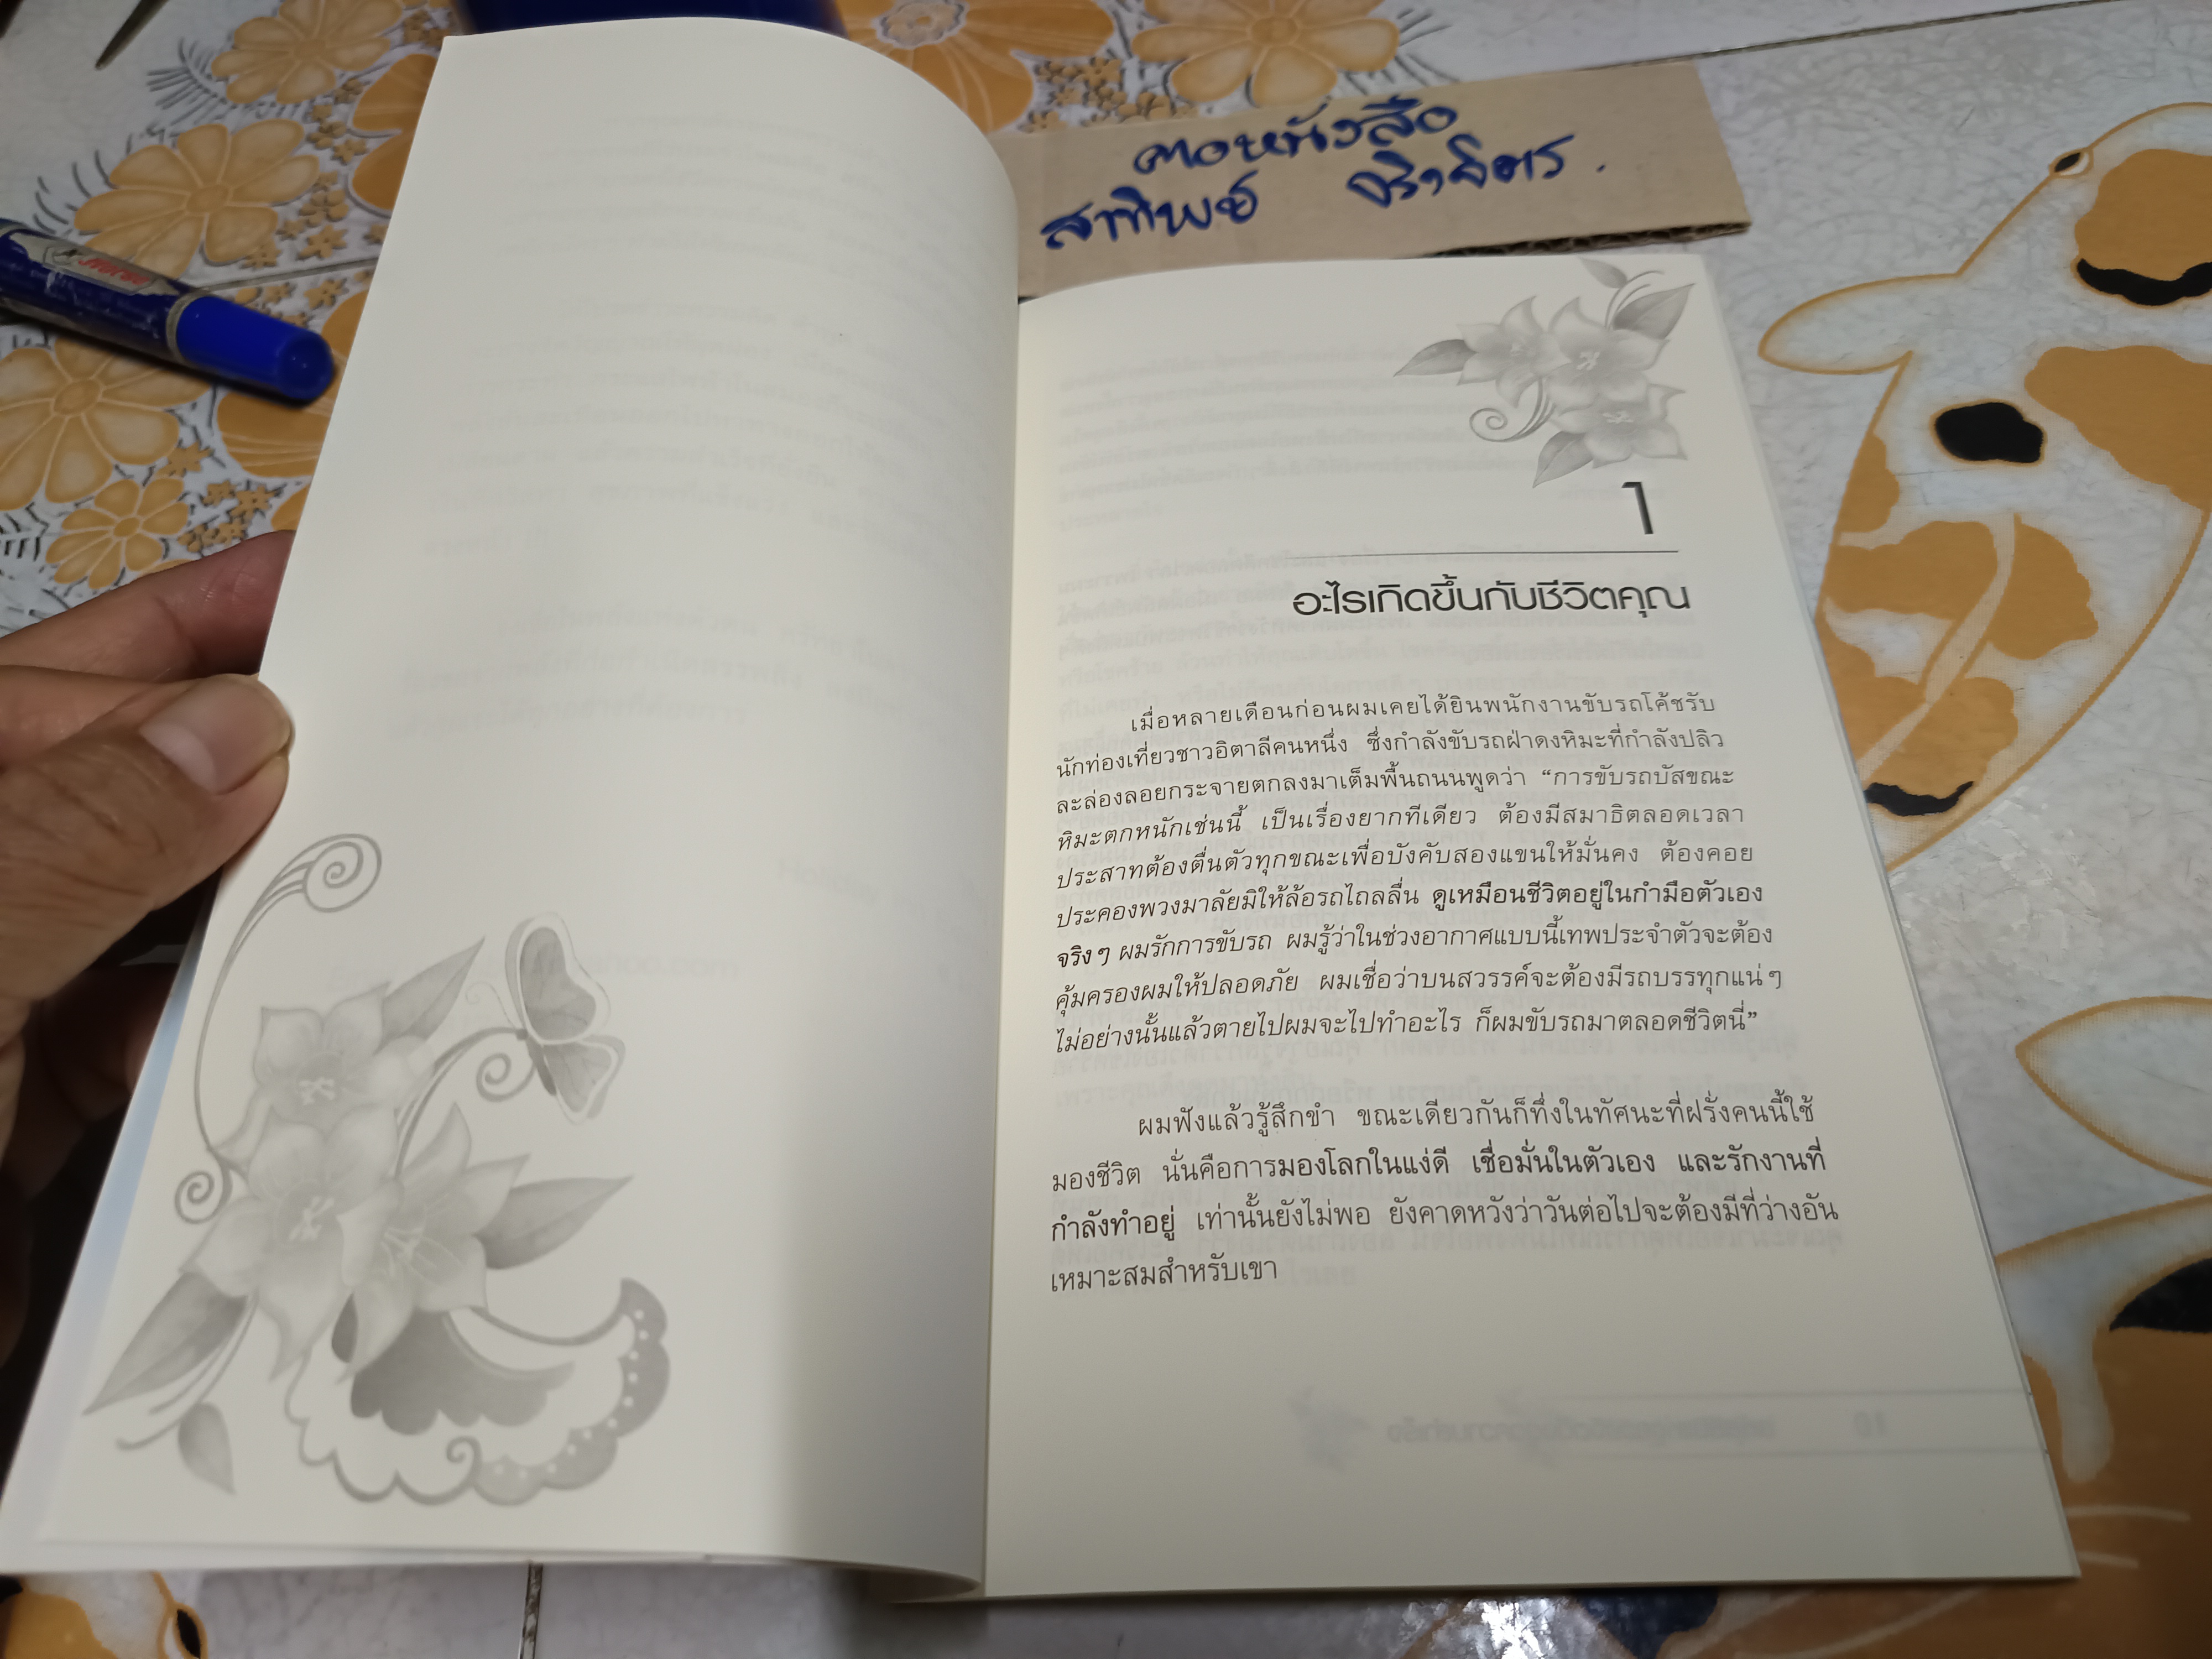 คอหนังสือ
สาทิพย์
Horse
1
อะไรเกิดขึ้นกับชีวิตคุณ
เมื่อหลายเดือนก่อนผมเคยได้ยินพนักงานขับรถโค้ชรับ
นักท่องเที่ยวชาวอิตาลีคนหนึ่ง ซึ่งกำลังขับรถฝ่าดงหิมะที่กำลังปลิว
ละล่องลอยกระจายตกลงมาเต็มพื้นถนนพูดว่า “การขับรถบัสขณะ
หิมะตกหนักเช่นนี้ เป็นเรื่องยากทีเดียว ต้องมีสมาธิตลอดเวลา
ประสาทต้องตื่นตัวทุกขณะเพื่อบังคับสองแขนให้มั่นคง ต้องคอย
ประคองพวงมาลัยมิให้ล้อรถไถลลื่น ดูเหมือนชีวิตอยู่ในกำมือตัวเอง
จริงๆ ผมรักการขับรถ ผมรู้ว่าในช่วงอากาศแบบนี้เทพประจำตัวจะต้อง
คุ้มครองผมให้ปลอดภัย ผมเชื่อว่าบนสวรรค์จะต้องมีรถบรรทุกแน่ๆ
ไม่อย่างนั้นแล้วตายไปผมจะไปทำอะไร ก็ผมขับรถมาตลอดชีวิตนี่”
ผมฟังแล้วรู้สึกขำ ขณะเดียวกันก็ทึ่งในทัศนะที่ฝรั่งคนนี้ใช้
มองชีวิต นั่นคือการมองโลกในแง่ดี เชื่อมั่นในตัวเอง และรักงานที่
กำลังทำอยู่ เท่านั้นยังไม่พอ ยังคาดหวังว่าวันต่อไปจะต้องมีที่ว่างอัน
เหมาะสมสำหรับเขา